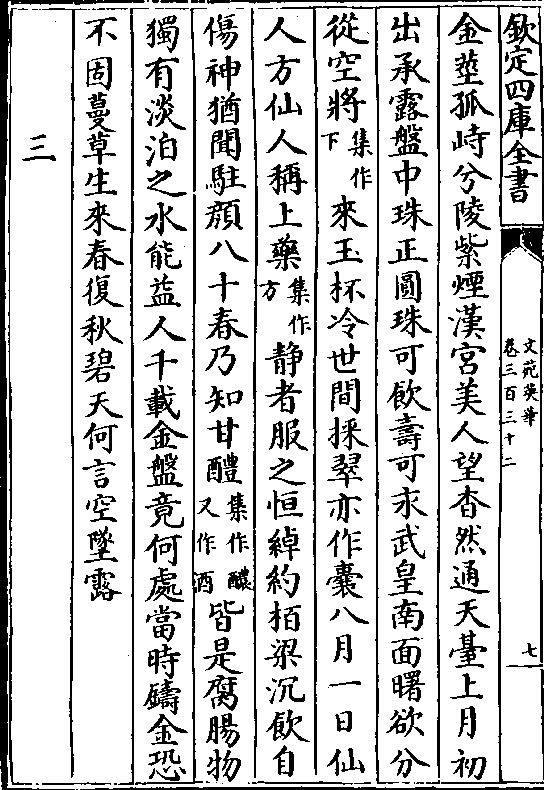 欽定四庫全書
文苑英華
卷三百三十二
七
金莖孤峙兮陵紫煙漢宮美人望杳然通天臺上月初
出承露盤中珠正圓珠可飲壽可求武皇南面曙欲分
從空將集作下來玉杯冷世間採翠亦作囊八月一日仙
人方仙人稱上藥集作方静者服之恒綽約栢梁沉飲自
傷神猶聞駐顔八十春乃知甘醴集作醲又作酒皆是腐腸物
獨有淡泊之水能益人千載金盤竟何處當時鑄金恐
不固蔓草生來春復秋碧天何言空墜露
三